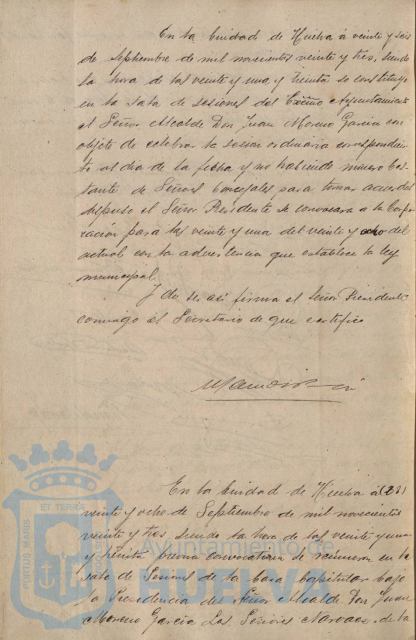 En la Ciudad de Huelva á veinte y seis
de Septiembre de mil novecientos veinte y tres, siendo
la hora de las veinte y una y treinta se constituyó
en la sala de sesiones del Excmo Ayuntamiento
el Señor Alcalde Don Juan Moreno García con
objeto de celebrar la sesion ordinaria correspondien-
te al dia de la fecha y no habiendo número bas-
tante de Señores Concejales para tomar acuerdos
dispuso el Señor Presidente se convocara a la Corpo-
ración para las veinte y una del veinte y ocho del
actual con la advertencia que establece la ley
municipal.
Y de ser así firma el Señor Presidente
conmigo el Secretario de que certifico
En la Ciudad de Huelva á (28)
veinte y ocho de Septiembre de mil novecientos
veinte y tres, siendo la hora de las veinte y una
y treinta previa convocatoria se reunieron en la
sala de Sesiones de la Casa Capitular bajo
la Presidencia del Señor Alcalde Don Juan
Moreno García los Señores Narvaez de la
PORTUS MARIS ET TERRAE
Ayuntamiento de
HUELVA